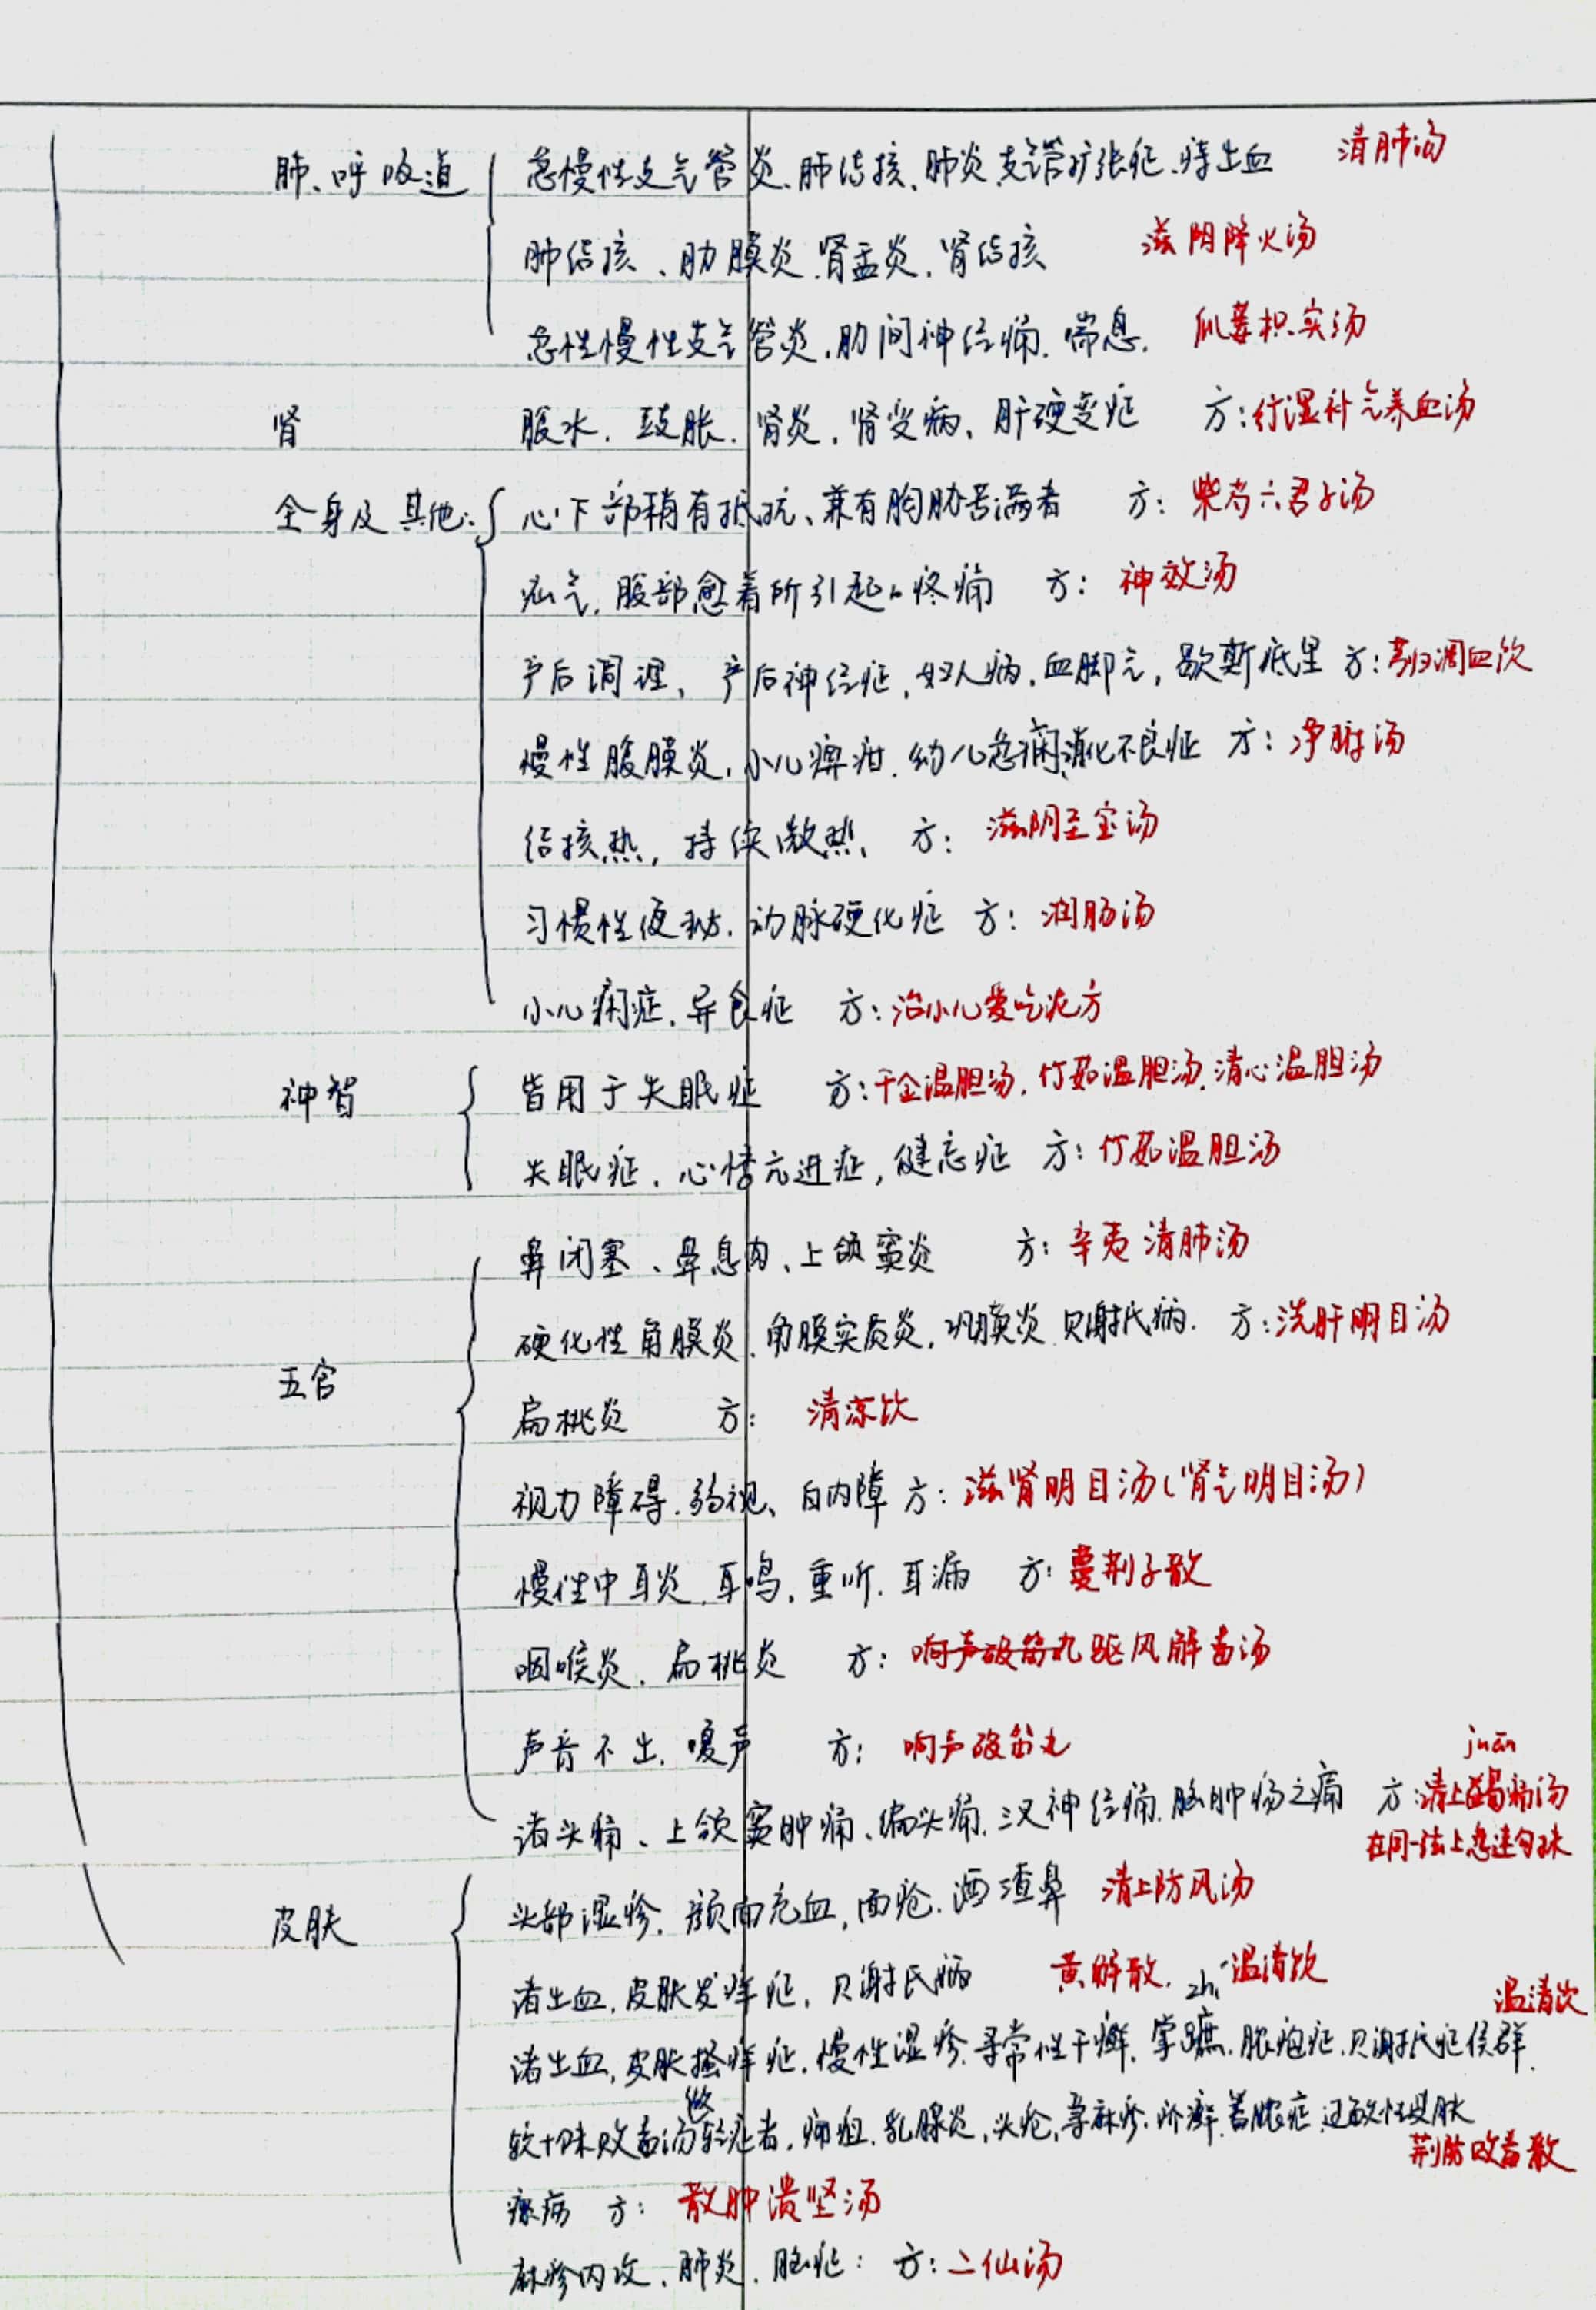 肺、呼吸道 急慢性支气管炎、肺结核、肺炎、支气管扩张症、痔出血 清肺汤
肺结核、肋膜炎、肾盂炎、肾结核 滋阴降火汤
急性慢性支气管炎、肋间神经痛、喘息. 瓜蒌枳实汤
肾 腹水、鼓胀、肾炎、肾变病、肝硬变症 方:行湿补气养血汤
全身及其他: 心下部稍有抵抗、兼有胸胁苦满者 方: 柴芍六君子汤
疝气、腹部愈着所引起的疼痛 方: 神效汤
产后调理、产后神经症、妇人病、血脚气,歇斯底里 方:芎归调血饮
慢性腹膜炎、小儿脾疳、幼儿急痫、消化不良症 方: 净府汤
结核热,持续微热、 方: 滋阴至宝汤
习惯性便秘、动脉硬化症 方: 润肠汤
小儿痫症、异食症 方:治小儿爱吃泥方
神智 皆用于失眠症 方:千金温胆汤、竹茹温胆汤、清心温胆汤
失眠症、心悸亢进症,健忘症 方: 竹茹温胆汤
鼻闭塞、鼻息肉、上颌窦炎 方: 辛夷清肺汤
硬化性角膜炎、角膜实质炎、巩膜炎、贝谢氏病. 方:洗肝明目汤
五官
扁桃炎 方: 清凉饮
视力障碍、弱视、白内障 方: 滋肾明目汤(肾气明目汤)
慢性中耳炎、耳鸣、重听、耳漏 方: 蔓荆子散
咽喉炎、扁桃炎 方: 响声破笛丸 驱风解毒汤
声音不出、嗄声 方: 响声破笛丸
juān
诸头痛、上颌窦肿痛、偏头痛、三叉神经痛、脑肿疡之痛 方:清上蠲痛汤
皮肤 头部湿疹、颜面充血,面疮、酒渣鼻 清上防风汤
诸出血,皮肤发痒症,贝谢氏病 黄解散. 温清饮
zhí
温清饮
诸出血,皮肤搔痒症、慢性湿疹、寻常性干癣、掌蹠脓疱症、贝谢氏症侯群.
较十味败毒汤轻症者,痈疽、乳腺炎,头疮,荨麻疹、疥癣、蓄脓症、过敏性皮肤
荆防败毒散
瘰疬 方: 散肿溃坚汤
麻疹内攻、肺炎、脑症: 方:二仙汤